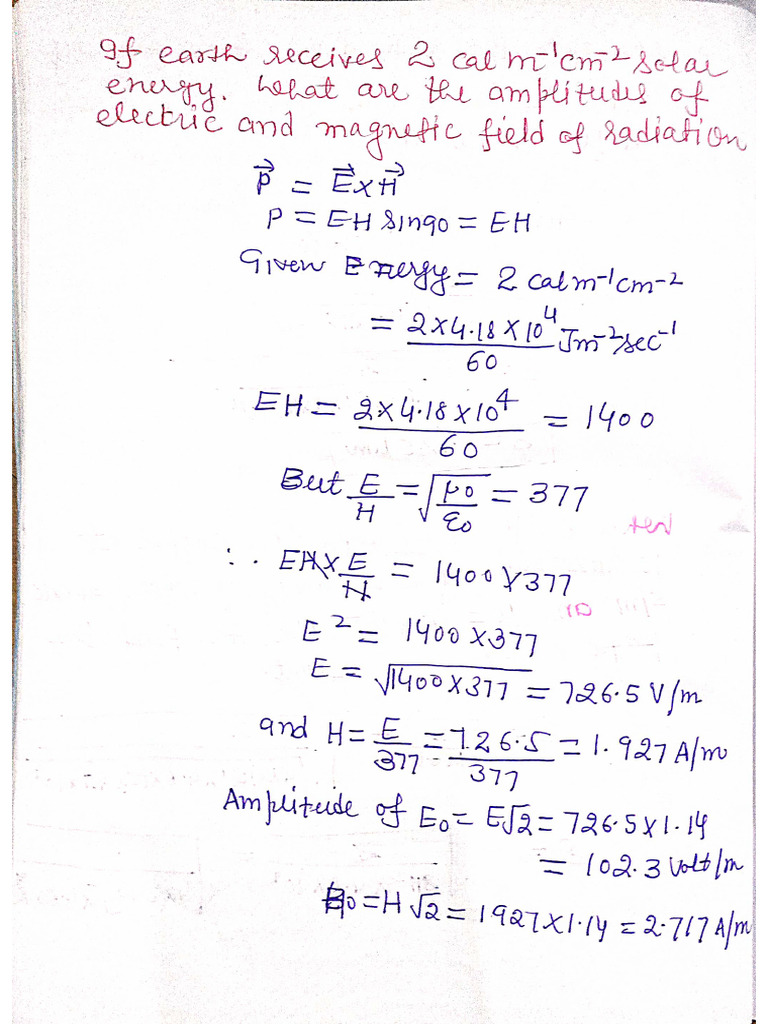 If earth receives 2 cal m⁻¹cm⁻² solar
energy. What are the amplitudes of
electric and magnetic field of radiation
P⃗ = E⃗ x H⃗
P = EH Sin90 = EH
Given Energy = 2 cal m⁻¹cm⁻²
= 2x4.18x10⁴/60 Jm⁻²sec⁻¹
EH = 2x4.18x10⁴/60 = 1400
But E/H = √μ0/ε0 = 377
∴ EH x E/H = 1400x377
E² = 1400x377
E = √1400x377 = 726.5 V/m
and H = E/377 = 726.5/377 = 1.927 A/m
Amplitude of E₀ = E√2 = 726.5x1.14
= 102.3 volt/m
H₀ = H√2 = 1927x1.14 = 2.717 A/m